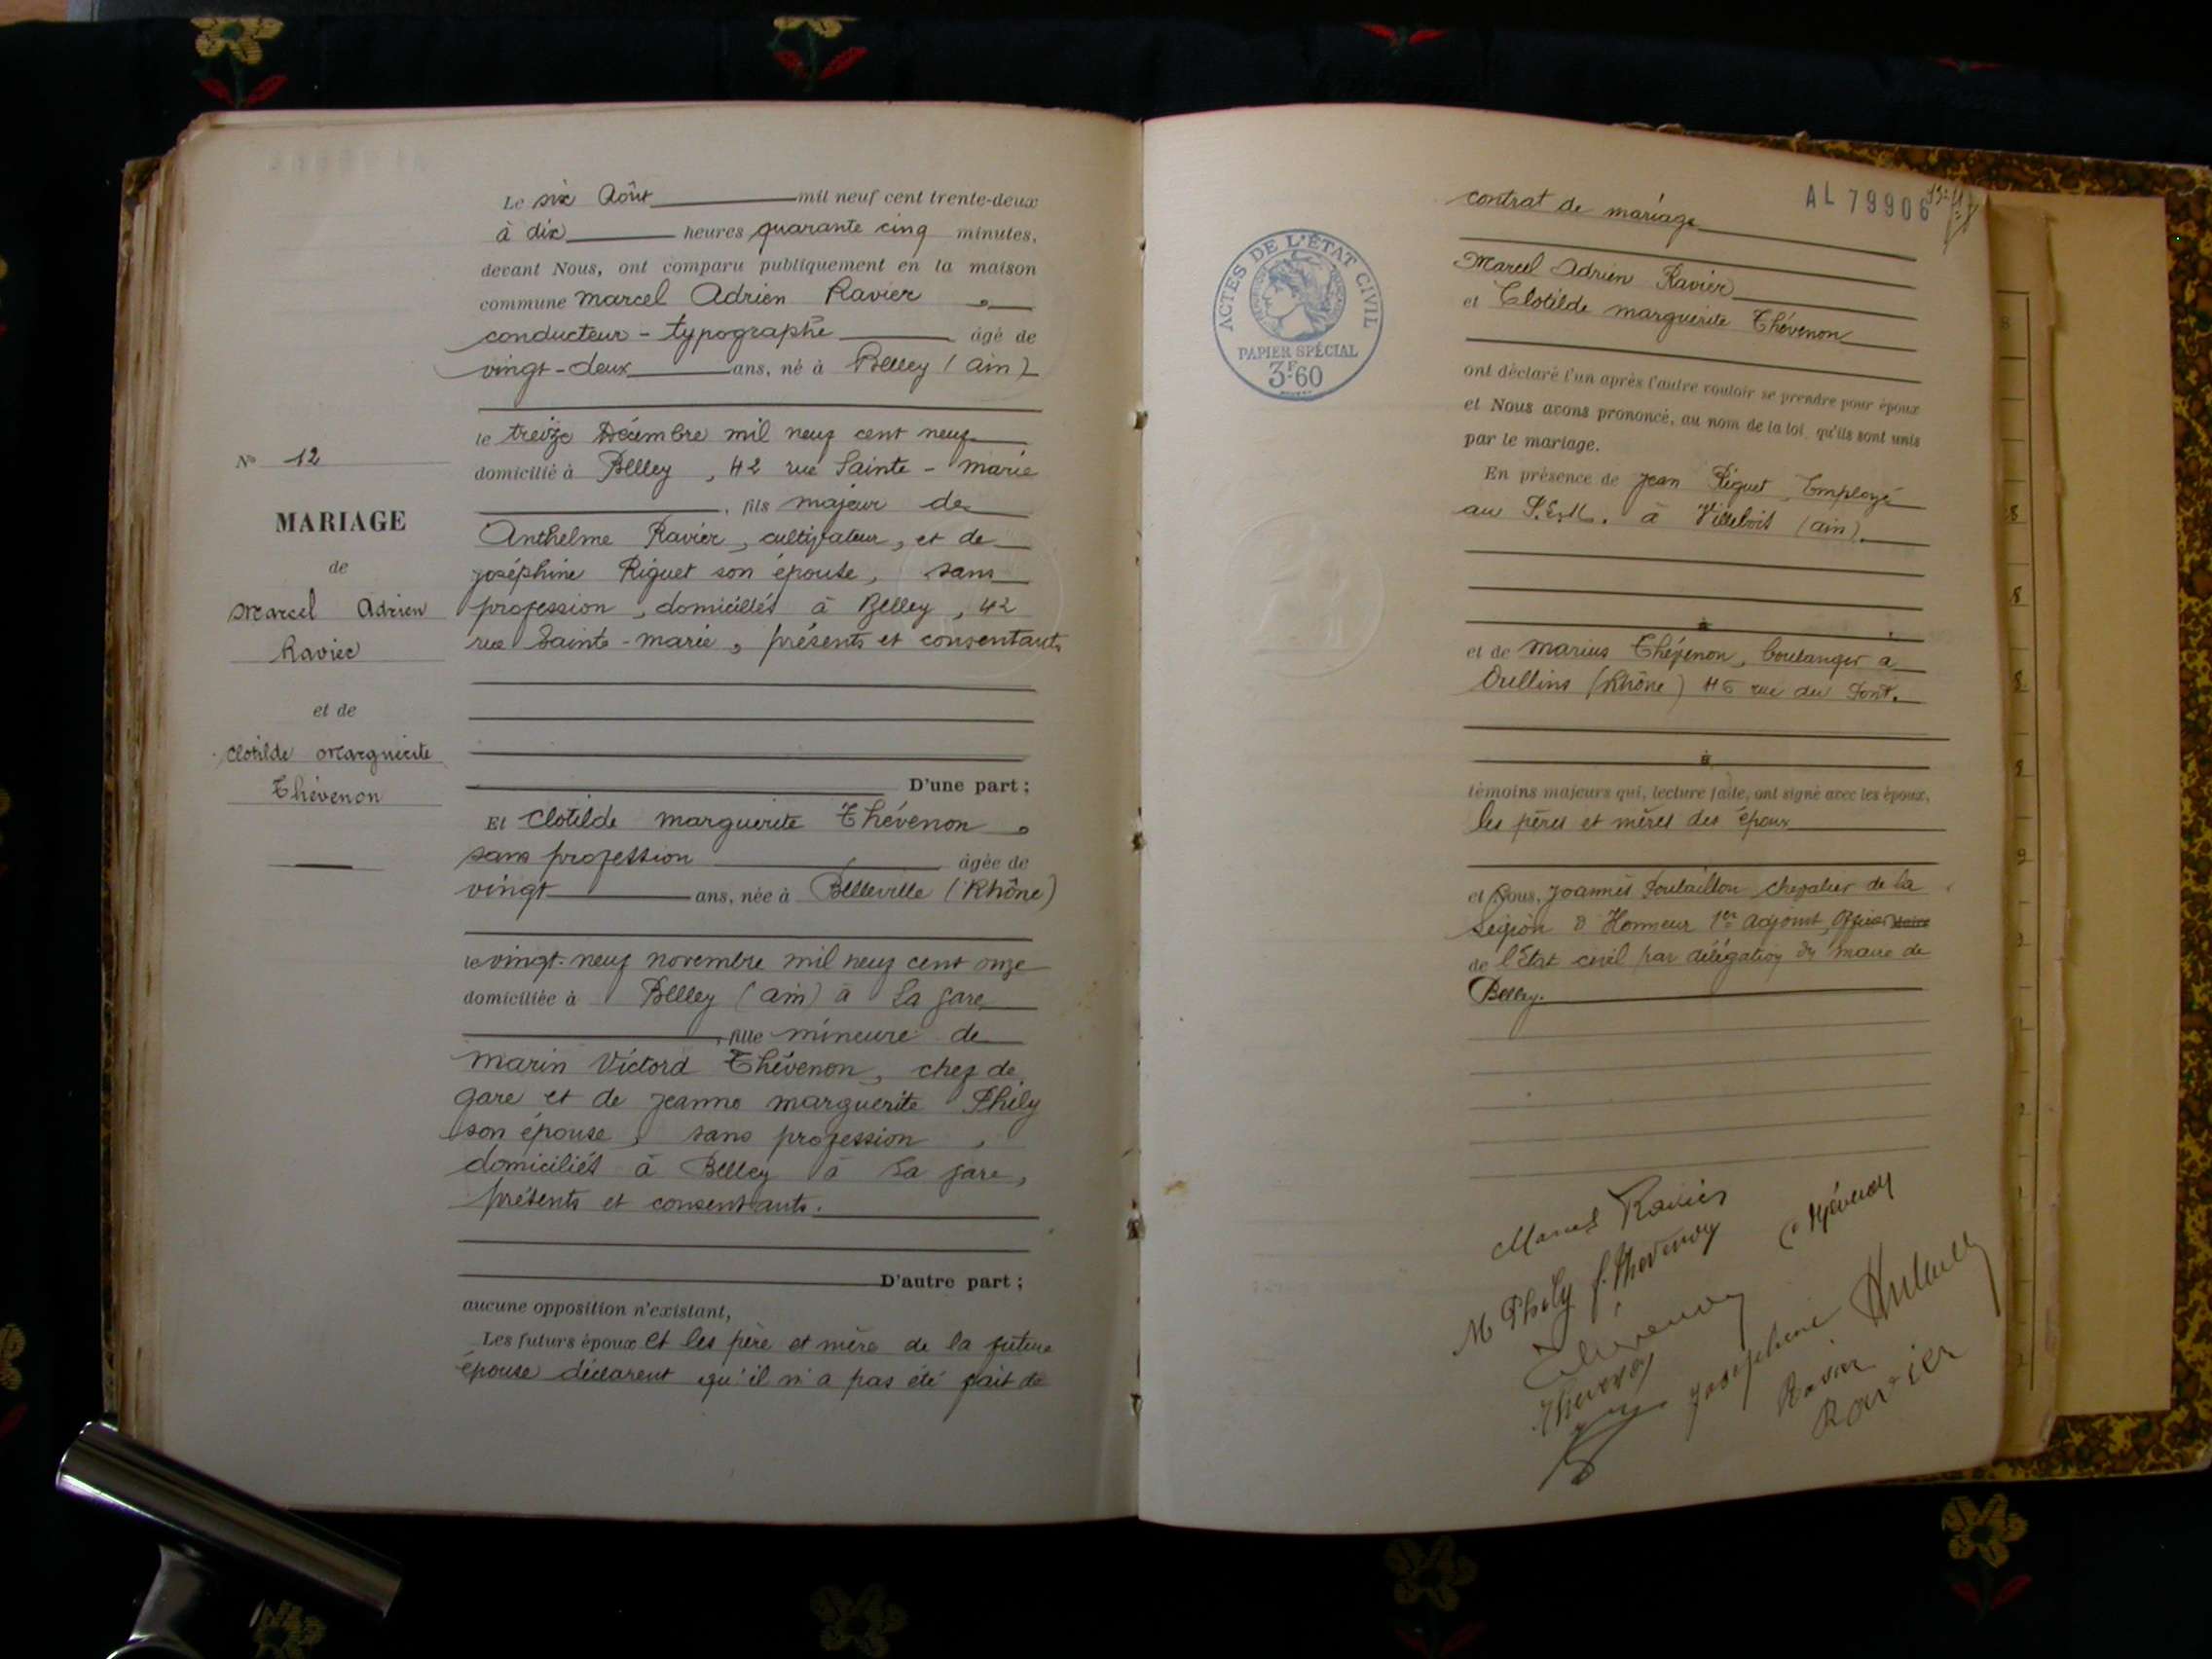 Le six Août mil neuf cent trente-deux
à dix heures quarante cinq minutes,
devant Nous, ont comparu publiquement en la maison
commune Marcel Adrien Ravier
conducteur - typographe âgé de
vingt-deux ans, né à Belley (Ain)
le treize Décembre mil neuf cent neuf
domicilié à Belley, 42 rue Sainte-Marie
, fils majeur de
Anthelme Ravier, cultivateur, et de
Joséphine Riguet son épouse, sans
profession, domiciliés à Belley, 42
rue Sainte-Marie, présents et consentants
D'une part ;
Et Clotilde Marguerite Thévenon
sans profession âgée de
vingt ans, née à Belleville (Rhône)
le vingt-neuf novembre mil neuf cent onze
domiciliée à Belley (Ain) à La Gare
, fille mineure de
Marin Victord Thévenon, chef de
gare et de Jeanne Marguerite Phily
son épouse, sans profession,
domiciliés à Belley à La gare,
présents et consentants.
D'autre part ;
aucune opposition n'existant,
Les futurs époux et les père et mère de la future
épouse déclarent qu'il n'a pas été fait de
No 12
MARIAGE
de
Marcel Adrien
Ravier
et de
Clotilde Marguerite
Thévenon
AL 79906
ACTES DE L'ÉTAT CIVIL
PAPIER SPÉCIAL
3F.60
contrat de mariage
Marcel Adrien Ravier
et Clotilde Marguerite Thévenon
ont déclaré l'un après l'autre vouloir se prendre pour époux
et Nous avons prononcé, au nom de la loi, qu'ils sont unis
par le mariage.
En présence de Jean Riguet, Employé
au P.L.M. à Villebois (Ain).
et de Marius Thévenon, boulanger à
Oullins (Rhône) 45 rue du Pont.
témoins majeurs qui, lecture faite, ont signé avec les époux,
les pères et mères des époux
et Nous, Joannès chevalier de la
Légion d'Honneur 1er adjoint, Officier Maire
de l'Etat civil par délégation du maire de
Belley.
Marcel Ravier
C Thévenon
M Phily f. Thevenon
Thévenon
Thevenon
Josephine
Ravier
Ravier